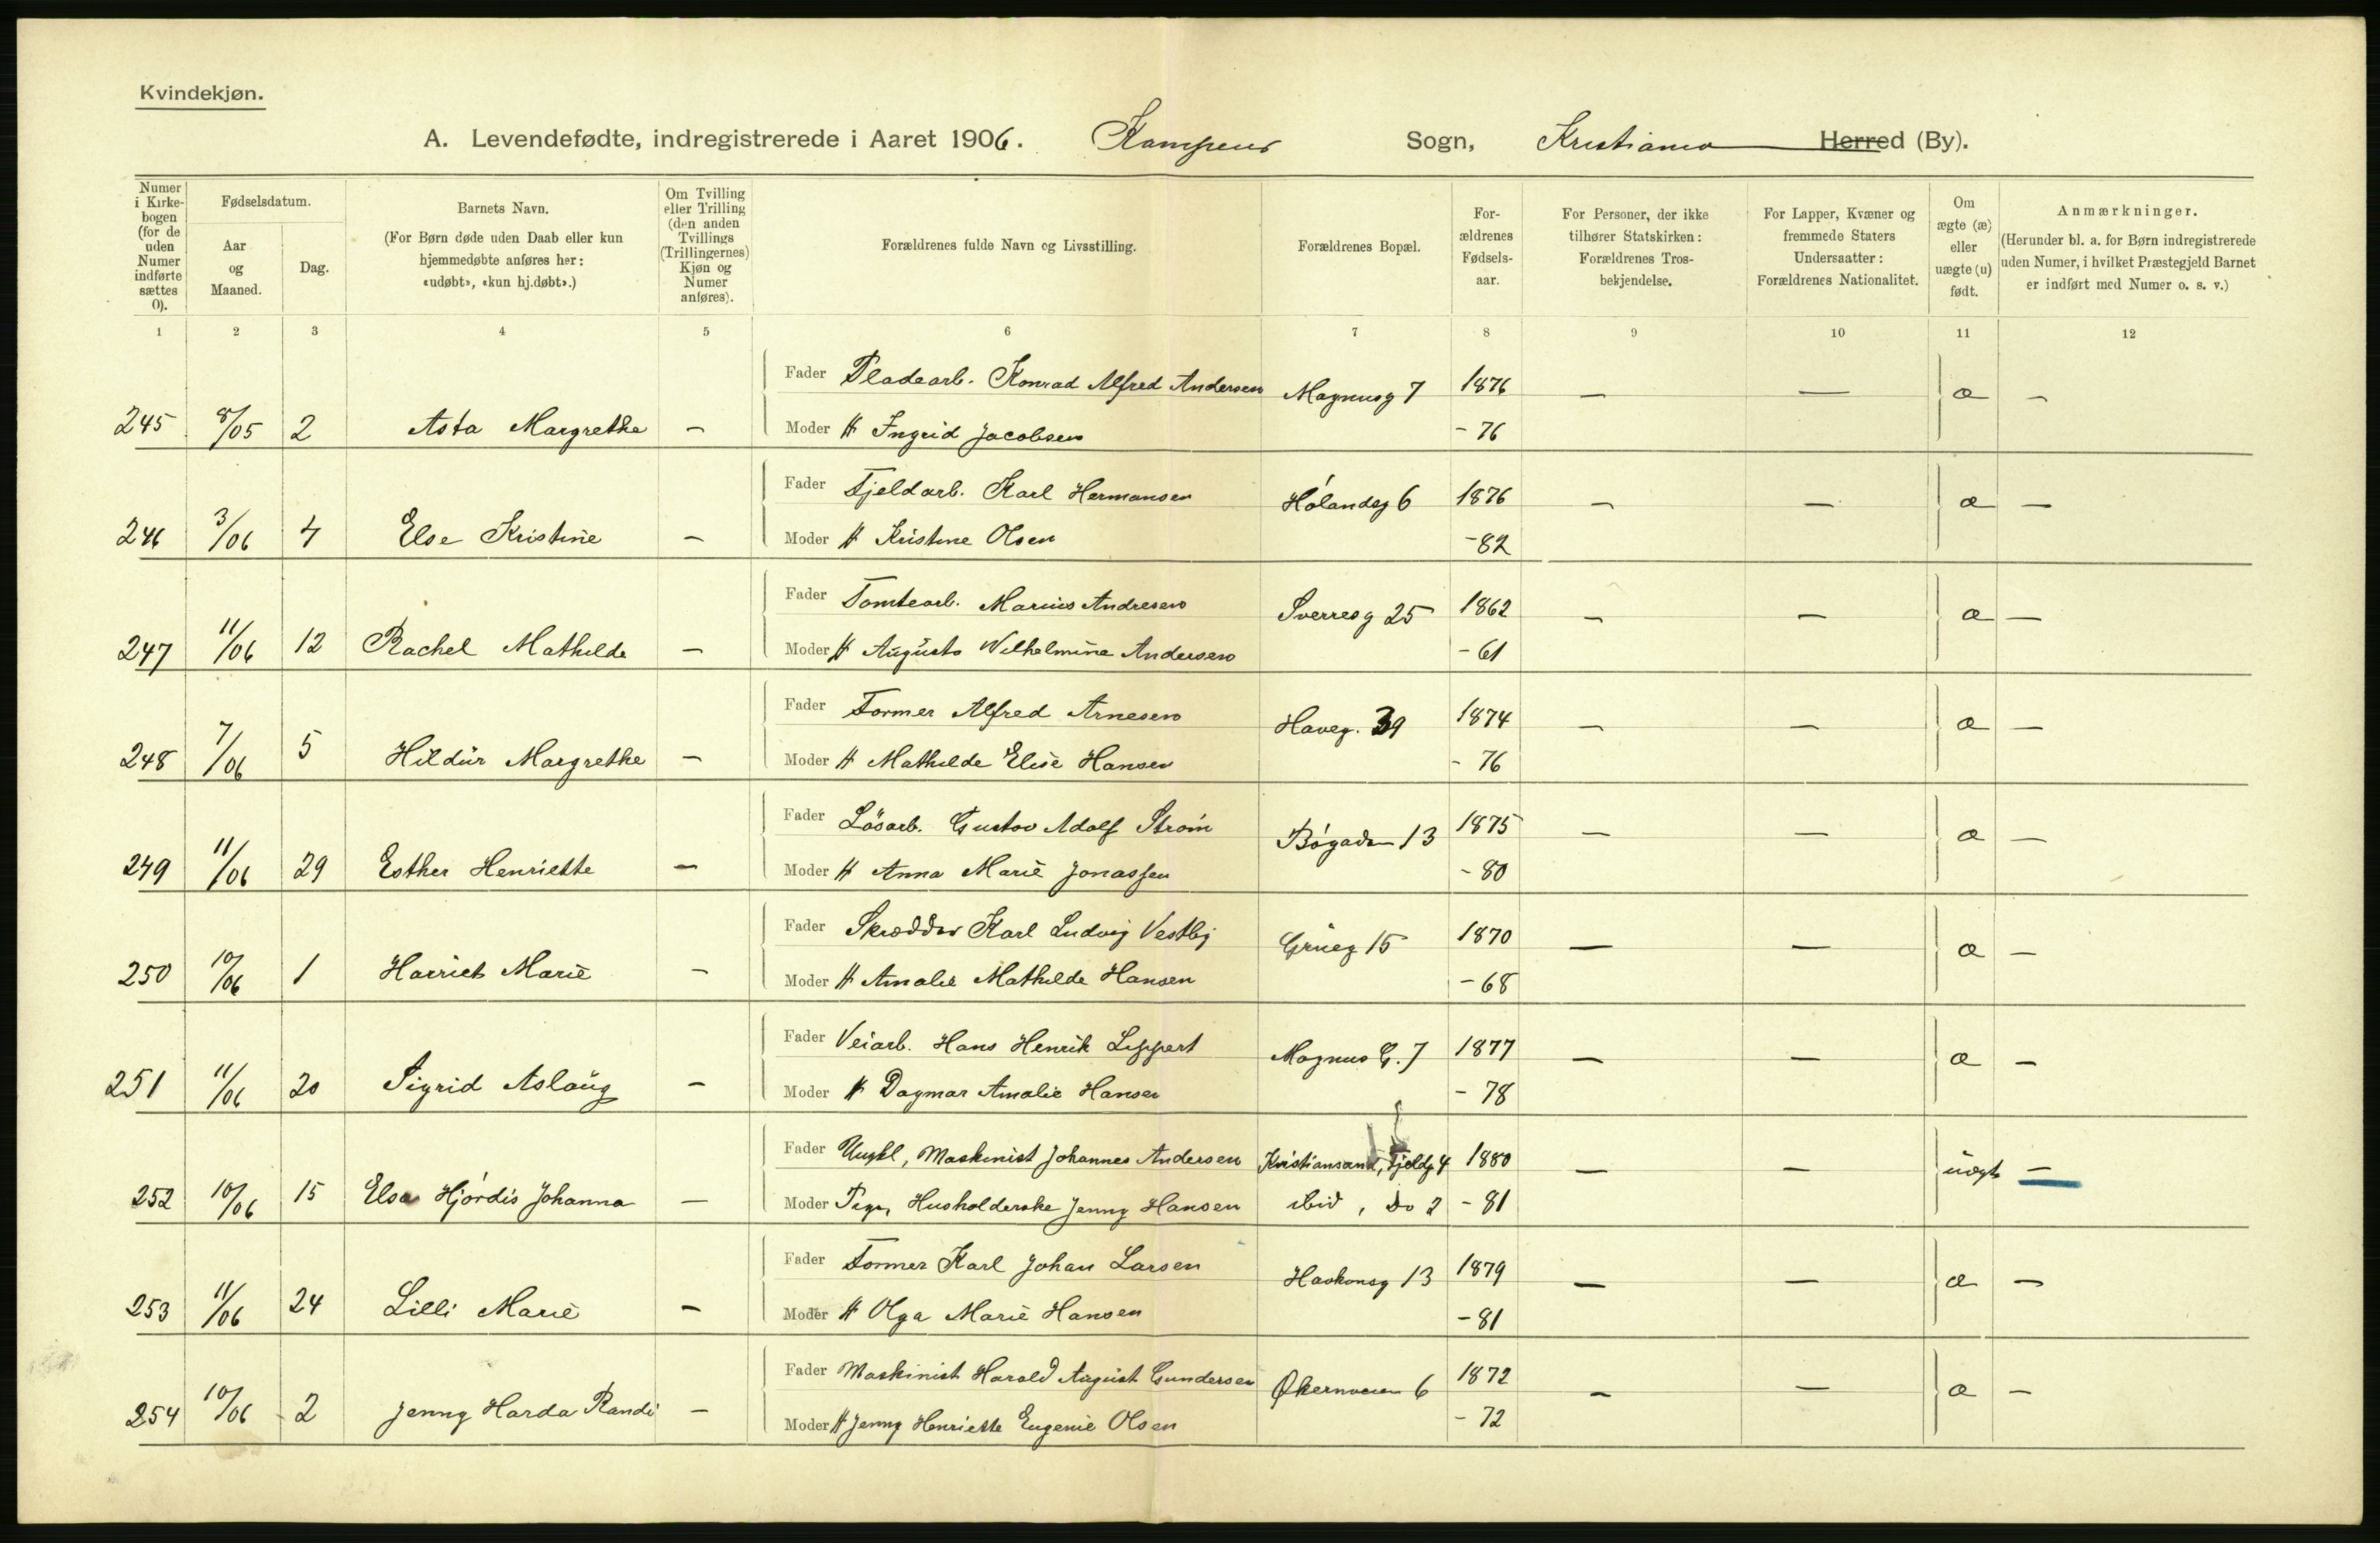 Kvindekjøn.
A. Levendefødte, indregistrerede i Aaret 1906. Kampens Sogn, Kristiania Herred (By).
Numer i Kirkebogen (for de uden Numer indførte sættes 0).
Fødselsdatum.
Aar og Maaned.
Dag.
Barnets Navn.
(For Børn døde uden Daab eller kun hjemmedøbte anføres her: «udøbt», «kun hj.døbt».)
Om Tvilling eller Trilling (den anden Tvillings (Trillingernes) Kjøn og Numer anføres).
Forældrenes fulde Navn og Livsstilling.
Forældrenes Bopæl.
Forældrenes Fødselsaar.
For Personer, der ikke tilhører Statskirken: Forældrenes Trosbekjendelse.
For Lapper, Kvæner og fremmede Staters Undersaatter: Forældrenes Nationalitet.
Om ægte (æ) eller uægte (u) født.
Anmærkninger.
(Herunder bl. a. for Børn indregistrerede uden Numer, i hvilket Præstegjeld Barnet er indført med Numer o. s. v.)
1 2 3 4 5 6 7 8 9 10 11 12
Fader Pladearb. Konrad Alfred Andersen Magnusg 7 1876 — — æ —
245 8/05 2 Asta Margrethe — Moder H Ingrid Jacobsen - 76
Fader Fjeldarb. Karl Hermansen Hölandsg 6 1876 — — æ —
246 3/06 4 Else Kristine — Moder H Kristine Olsen - 82
Fader Tomtearb. Marius Andresen Sverresg 25 1862 — — æ —
247 11/06 12 Rachel Mathilde — Moder H Augusta Wilhelmine Andersen - 61
Fader Former Alfred Arnesen Haveg. 39 1874 — — æ —
248 7/06 5 Hildur Margrethe — Moder H Mathilde Elise Hansen - 76
Fader Lösarb. Gustav Adolf Strøm Bögaden 13 1875 — — æ —
249 11/06 29 Esther Henriette — Moder H Anna Marie Jonassen - 80
Fader Skrædder Karl Ludvig Vestby Grüeg 15 1870 — — æ —
250 10/06 1 Harriet Marie — Moder H Amalie Mathilde Hansen - 68
Fader Veiarb. Hans Henrik Lippert Magnus G. 7 1877 — — æ —
251 11/06 20 Sigrid Aslaug — Moder H Dagmar Amalie Hansen - 78
Fader Ungkl, Maskinist Johannes Andersen Kristiansand, Fjeldg 4 1880 — — uægte —
252 10/06 15 Elsa Hjördis Johanna — Moder Pige, Husholderske Jenny Hansen ibid, do 2 - 81
Fader Former Karl Johan Larsen Haakonsg 13 1879 — — æ —
253 11/06 24 Lilli Marie — Moder H Olga Marie Hansen - 81
Fader Maskinist Harald August Gundersen Økernveien 6 1872 — — æ —
254 10/06 2 Jenny Harda Randi — Moder H Jenny Henriette Eugenie Olsen - 72